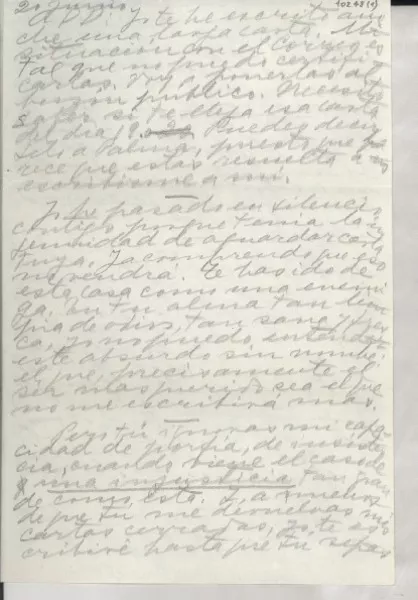 20 Junio
D. D.: Yo te he escrito ano
che una larga carta. Mi
situación con el Correo es
tal que no puedo certificar
cartas. Voy a ponerlas al
buzón público. Necesito
saber si te llega esa carta
del día 19. Puedes decír
selo a Palma, puesto que pa
rece que estás resuelta a no
escribirme a mí.
Yo he pasado en silencio
contigo porque tenía la in
genuidad de aguardar carta
tuya. Ya comprendo que eso
no vendrá. Te has ido de
esta casa como una enemi
ga. En tu alma tan lim
pia de odios, tan sana y
yo no puedo entender
este absurdo sin nombre:
el que, precisamente el
ser más querido sea el que
no me escribirá más.
Pero tú ignoras mi capa
cidad de porfía, de insisten
cia, cuando viene el caso de
una injusticia tan gran
de como ésta. Y, a menos
de que tú me devuelvas mis
cartas cerradas, yo te es
cribiré hasta que tú sepas